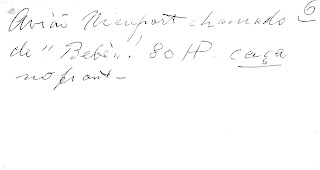 Avião Nieuport chamado 6
de "Bebé". 80 HP. caça
no front –